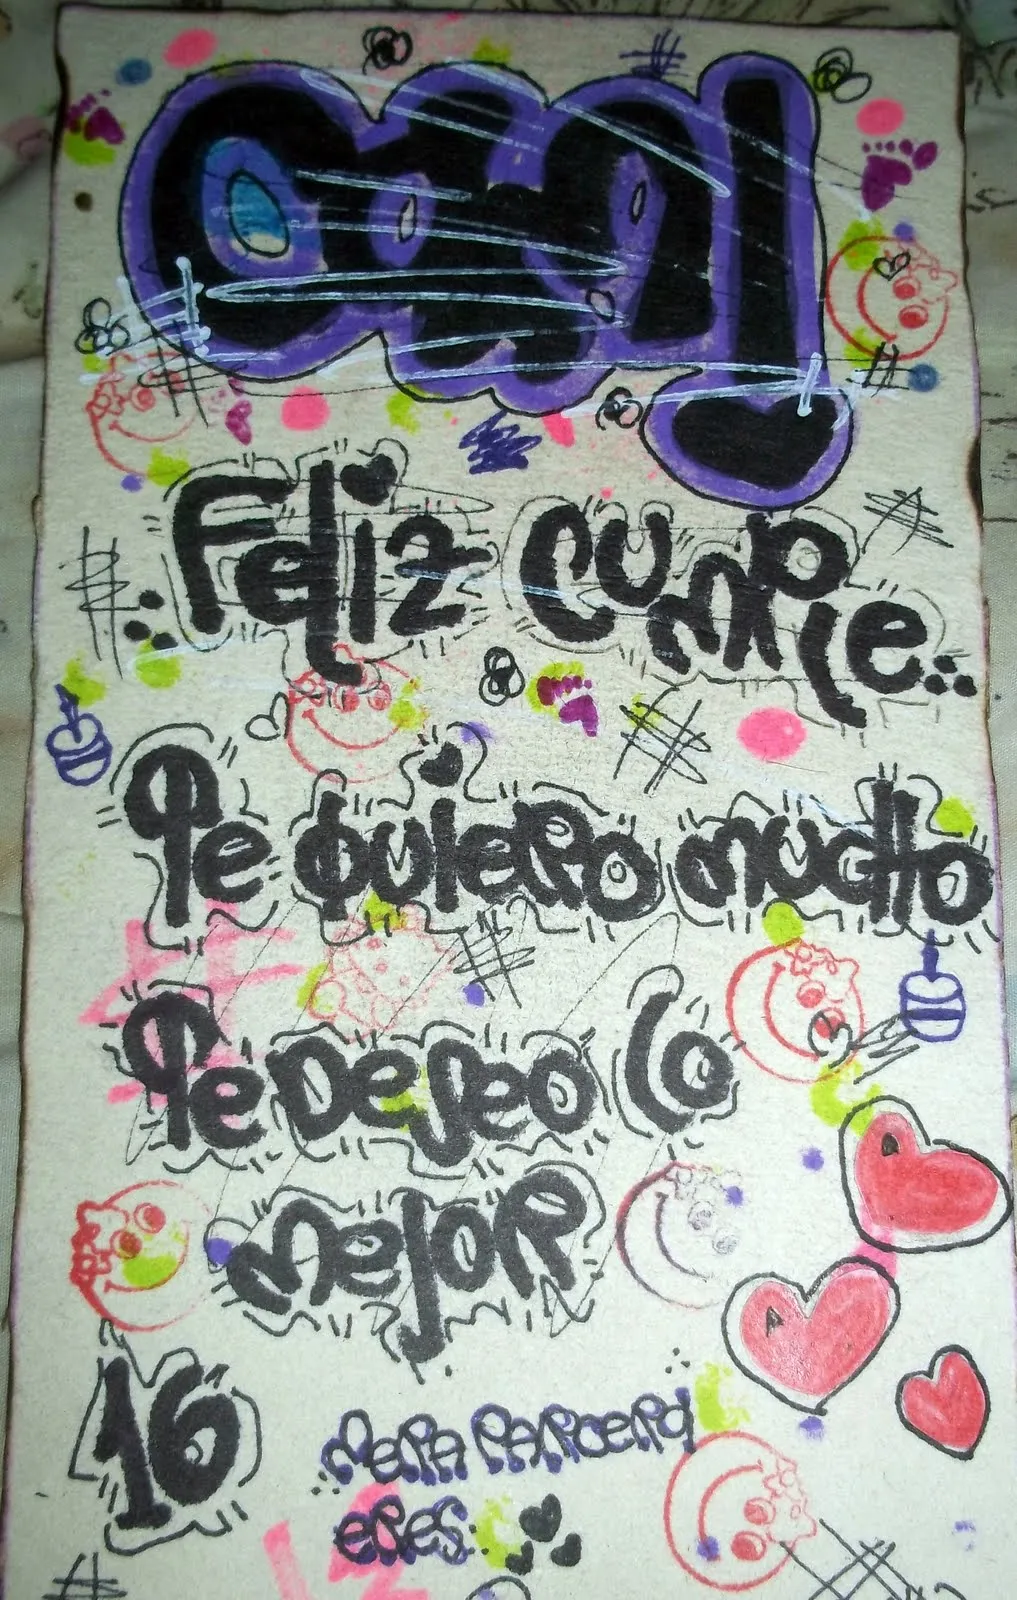 Feliz cumple...
Te quiero mucho
Te Deseo Lo
mejor
16
Mera parcera
eres